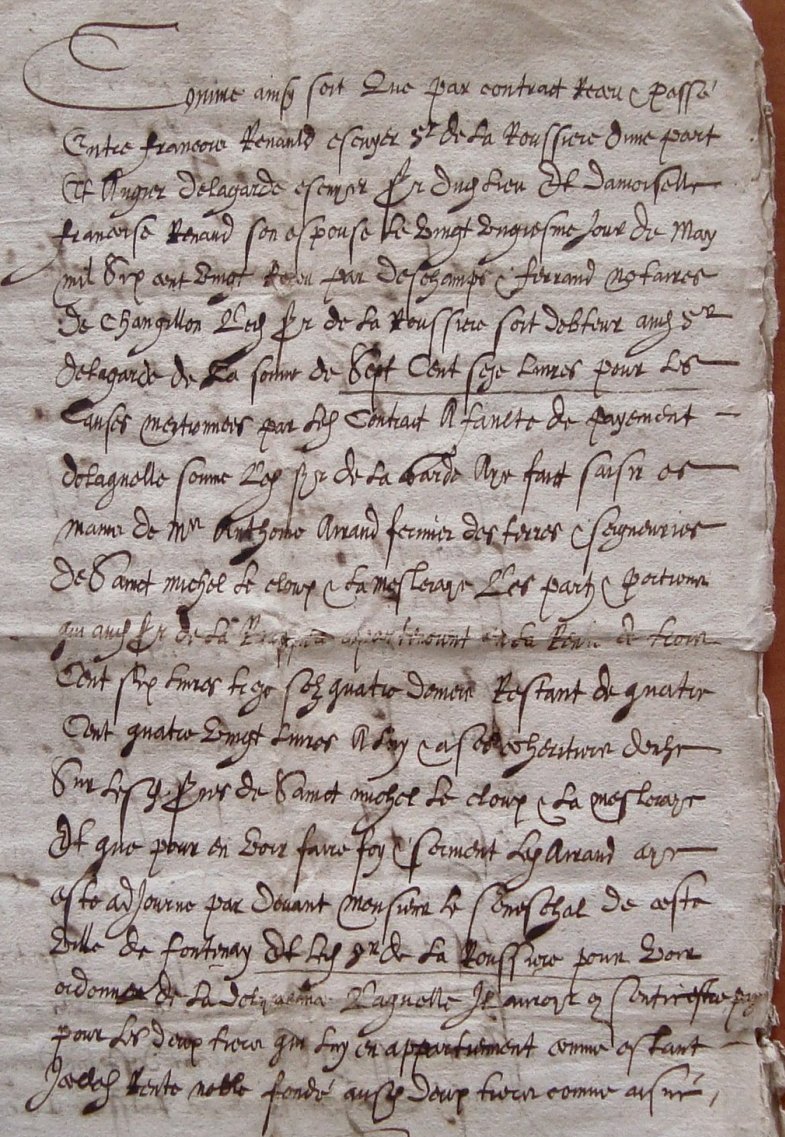 Comme ainsy soit Que par contract Receu & passé
Entre francois Renauld escuyer Sr de La Roussiere dune part
Et Augier delagarde escuyer Sr dud Lieu Et damoiselle
francoise Renaud son espouse Le Vingt Jour de May
mil Six cent Vingt Receu par deschamps & ferrand notaires
de Changillon Led Sr de La Roussiere soit debteur aud Sr
delagarde de La somme de Sept Cent seze Livres pour Les
Causes mentionnees par Led Contract A faulte de payement
de Laquelle somme Led Sr de La Garde Aye faict saisir es
mains de Mre Anthoine Arraud fermier des terres & seigneuries
de Sainct michel Le cloux & La mesleraye Les partz & portions
qui aud Sr de La en La Rente de trois
Cent six Livres treze solz quatre deniers Restant de quatre
Cent quatre Vingt Livres A Luy & a ses coheritiers deuhe
Sur Lesd Sries de Sainct michel Le cloux & La mesleraye
Et que pour en Voir faire foy & serment Led Arraud aye
esté adJourné par devant Monsieur Le Seneschal de ceste
Ville de fontenay Et Led Sr de La Roussiere pour Voir
ordonner de La Laquelle Il auroyt consenti estre
pour Les deux tiers qui Luy en appartiennent comme estant
Icelle Rente noble fondé ausd deux tiers comme aisné,